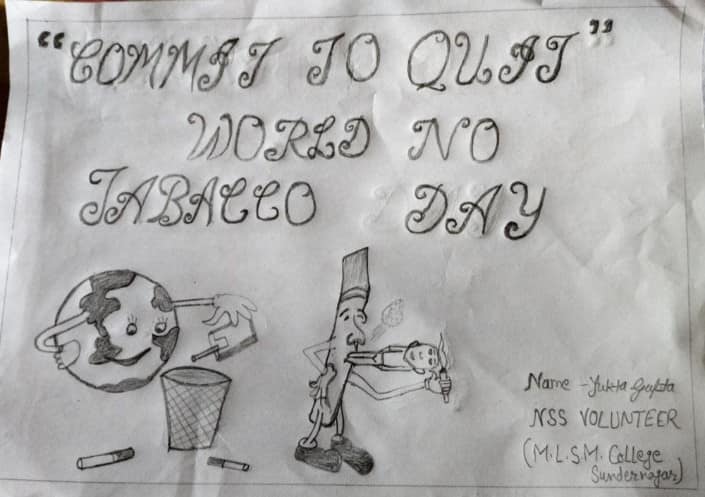 “COMMIT TO QUIT”
WORLD NO
TABACCO DAY
Name - Yukta Gupta
NSS VOLUNTEER
(M.L.S.M. College
Sundernagar)